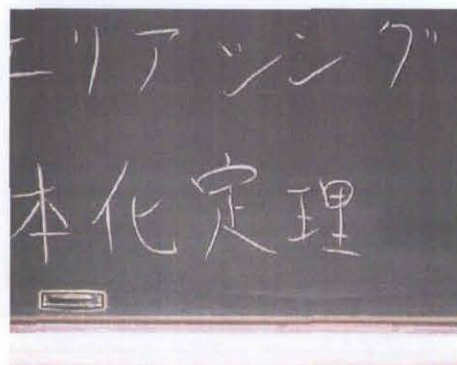 エリアッシング
本化定理